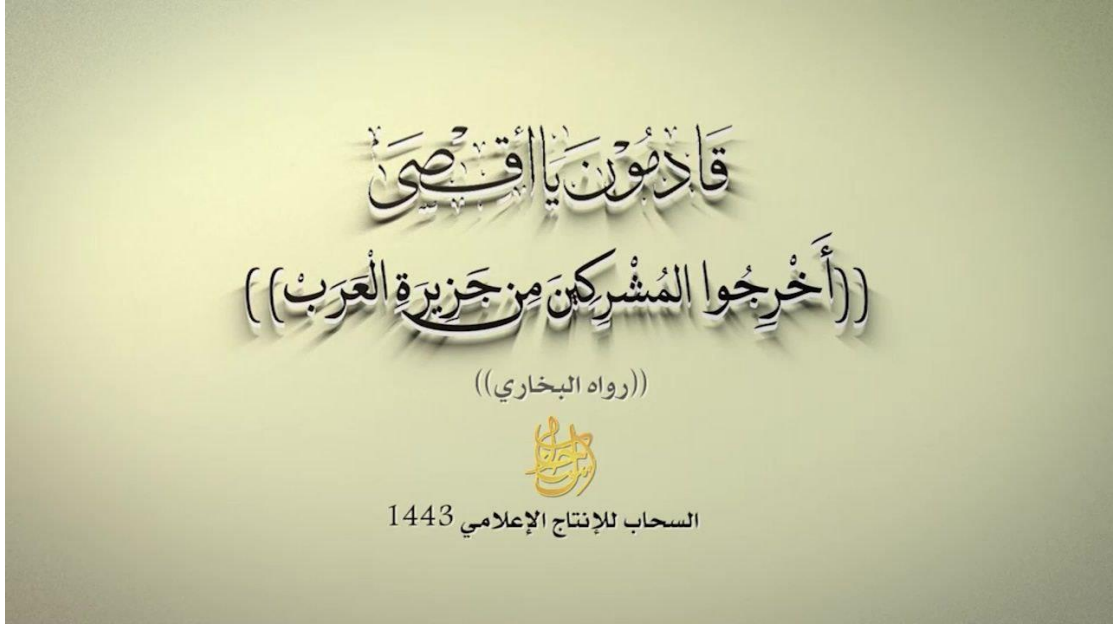 قَادِمُوْنَ يَا أَقْصَى
((أَخْرِجُوا المُشْرِكِينَ مِن جَزِيرَةِ الْعَرَبْ))
((رواه البخاري))
السحاب
السحاب للإنتاج الإعلامي 1443